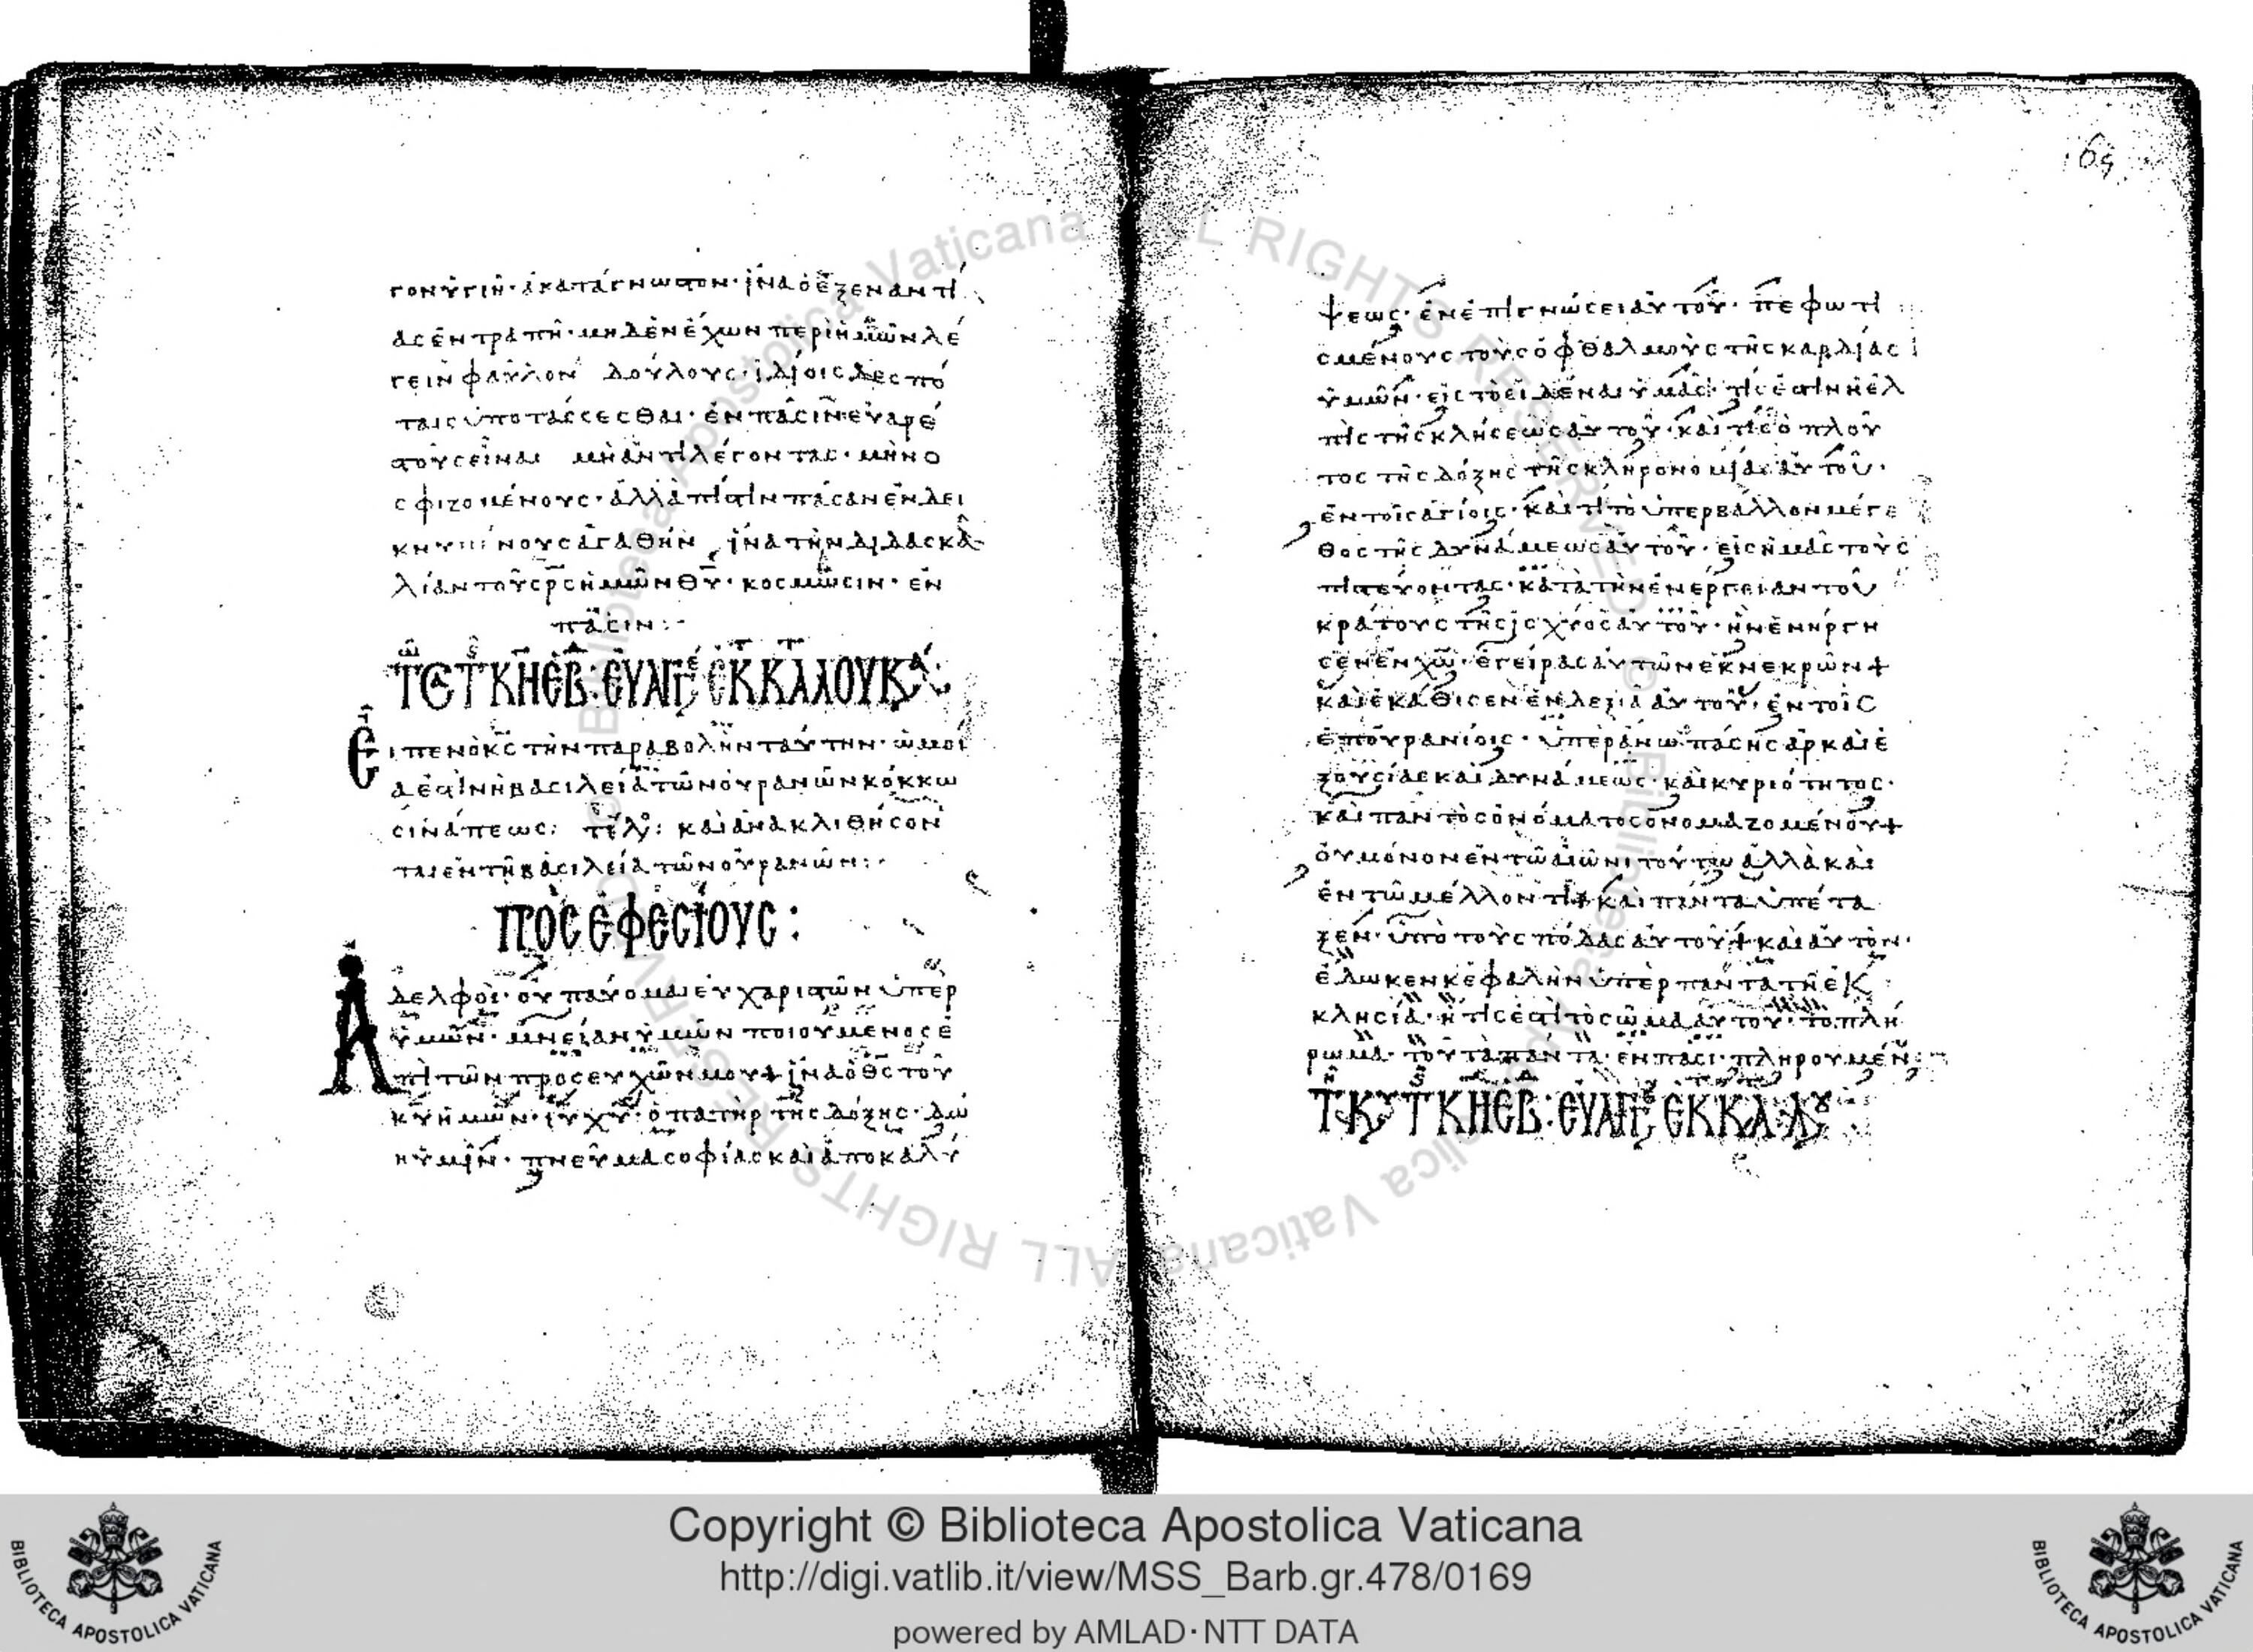 γον ὑγιῆ· ἀκατάγνωστον· ἵνα ὁ ἐξ ἐναντί
ας ἐντραπῆ· μηδὲν ἔχων περὶ ἡμῶν λέ
γειν φαῦλον δούλους· ἰδίοις δεσπό
ταις ὑποτάσσεσθαι· ἐν πᾶσιν εὐαρέ
στους εἶναι μὴ ἀντιλέγοντας· μὴ νο
σφιζομένους· ἀλλὰ πίστιν πᾶσαν ἐνδει
κνυμένους ἀγαθήν, ἵνα τὴν διδασκα
λίαν τοῦ σρς ἡμῶν θυ· κοσμῶσιν· ἐν
πᾶσιν:
εὐαγγ ἐκ κατὰ λουκα
Εἶπεν ὁ κς τὴν παραβολὴν ταύτην· ὡμοί
α ἐστὶν ἡ βασιλεία τῶν οὐρανῶν κόκκω
σινάπεως: τέλ: καὶ ἀνακλιθήσον
ται ἐν τῆ βασιλεία τῶν οὐρανῶν:
πὸς ἐφεσίους:
Ἀδελφοὶ· οὐ παύομαι εὐχαριστῶν ὑπὲρ
ὑμῶν· μνείαν ὑμῶν ποιούμενος ἐ
πὶ τῶν προσευχῶν μου + ἵνα ὁ θς τοῦ
κυ ἡμῶν· ιυ χυ· ὁ πατὴρ τῆς δόξης· δώ
η ὑμῖν· πνεῦμα σοφίας καὶ ἀποκαλύ
169
ψεως· ἐν ἐπιγνώσει αὐτοῦ· πεφωτι
σμένους τοὺς ὀφθαλμοὺς τῆς καρδίας
ὑμῶν· εἰς τὸ εἰδέναι ὑμᾶς· τίς ἐστιν ἡ ἐλ
πὶς τῆς κλήσεως αὐτοῦ· καὶ τίς ὁ πλοῦ
τος τῆς δόξης τῆς κληρονομίας αὐτοῦ·
ἐν τοῖς ἁγίοις· καὶ τί τὸ ὑπερβάλλον μέγε
θος τῆς δυνάμεως αὐτοῦ· εἰς ἡμᾶς τοὺς
πιστεύοντας· κατὰ τὴν ἐνέργειαν τοῦ
κράτους τῆς ἰσχύος αὐτοῦ· ἣν ἐνήργη
σεν ἐν χω· ἐγείρας αὐτὸν ἐκ νεκρῶν +
καὶ ἐκάθισεν ἐν δεξιᾶ αὐτοῦ· ἐν τοῖς
ἐπουρανίοις· ὑπεράνω πάσης ἀρ καὶ ἐ
ξουσίας καὶ δυνάμεως· καὶ κυριότητος·
καὶ παντὸς ὀνόματος ὀνομαζομένου +
οὐ μόνον ἐν τῶ αἰῶνι τούτω ἀλλὰ καὶ
ἐν τῶ μέλλοντι + καὶ πάντα ὑπέτα
ξεν· ὑπὸ τοὺς πόδας αὐτοῦ + καὶ αὐτὸν·
ἔδωκεν κεφαλὴν ὑπὲρ πάντα τῆ ἐκ
κλησία· ἥτις ἐστὶ τὸ σῶμα αὐτοῦ· τὸ πλή
ρωμα· τοῦ τὰ πάντα· ἐν πᾶσι· πληρουμέν:
εὐαγγ ἐκ κατὰ λου
Copyright © Biblioteca Apostolica Vaticana
http://digi.vatlib.it/view/MSS_Barb.gr.478/0169
powered by AMLAD·NTT DATA
BIBLIOTECA APOSTOLICA VATICANA
BIBLIOTECA APOSTOLICA VATICANA